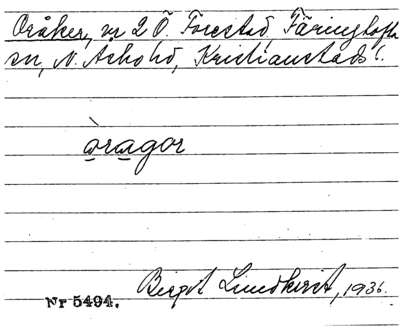 Oråker, nr 2 Ö. Forestad, Färinglofta
sn, N. Åsbo hd, Kristianstads l.
òragor
Birgit Lundkvist, 1936.
Nr 5494.